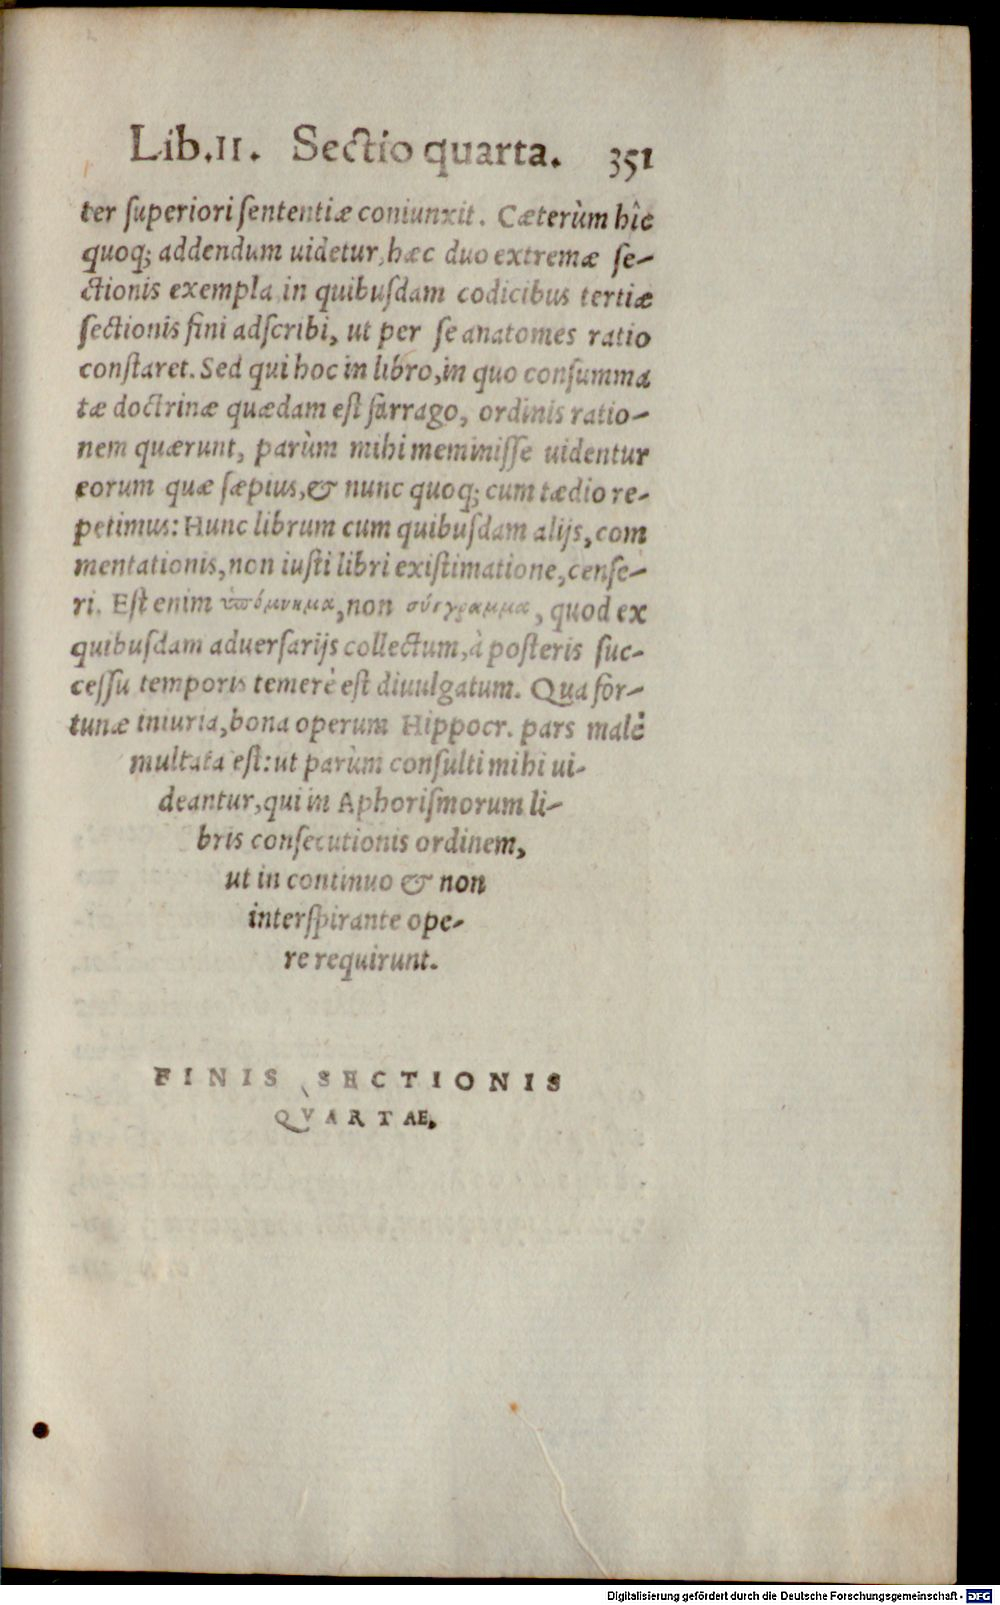 Lib.II. Sectio quarta. 351
ter ſuperiori ſententiæ coniunxit. Cæterùm hîc
quoq; addendum uidetur, hæc duo extremæ ſe-
ctionis exempla in quibuſdam codicibus tertiæ
ſectionis fini adſcribi, ut per ſe anatomes ratio
conſtaret. Sed qui hoc in libro, in quo conſumma
tæ doctrinæ quædam eſt farrago, ordinis ratio-
nem quærunt, parùm mihi meminiſſe uidentur
eorum quæ ſæpius, & nunc quoq; cum tædio re-
petimus: Hunc librum cum quibuſdam alijs, com
mentationis, non iuſti libri exiſtimatione, cenſe-
ri. Eſt enim ὑπόμνημα, non σύγγραμμα, quod ex
quibuſdam aduerſarijs collectum, à poſteris ſuc-
ceſſu temporis temerè eſt diuulgatum. Qua for-
tunæ iniuria, bona operum Hippocr. pars malè
multata eſt: ut parùm conſulti mihi ui-
deantur, qui in Aphoriſmorum li-
bris conſecutionis ordinem,
ut in continuo & non
interſpirante ope-
re requirunt.
FINIS SECTIONIS
QVARTAE.
Digitalisierung gefördert durch die Deutsche Forschungsgemeinschaft - DFG